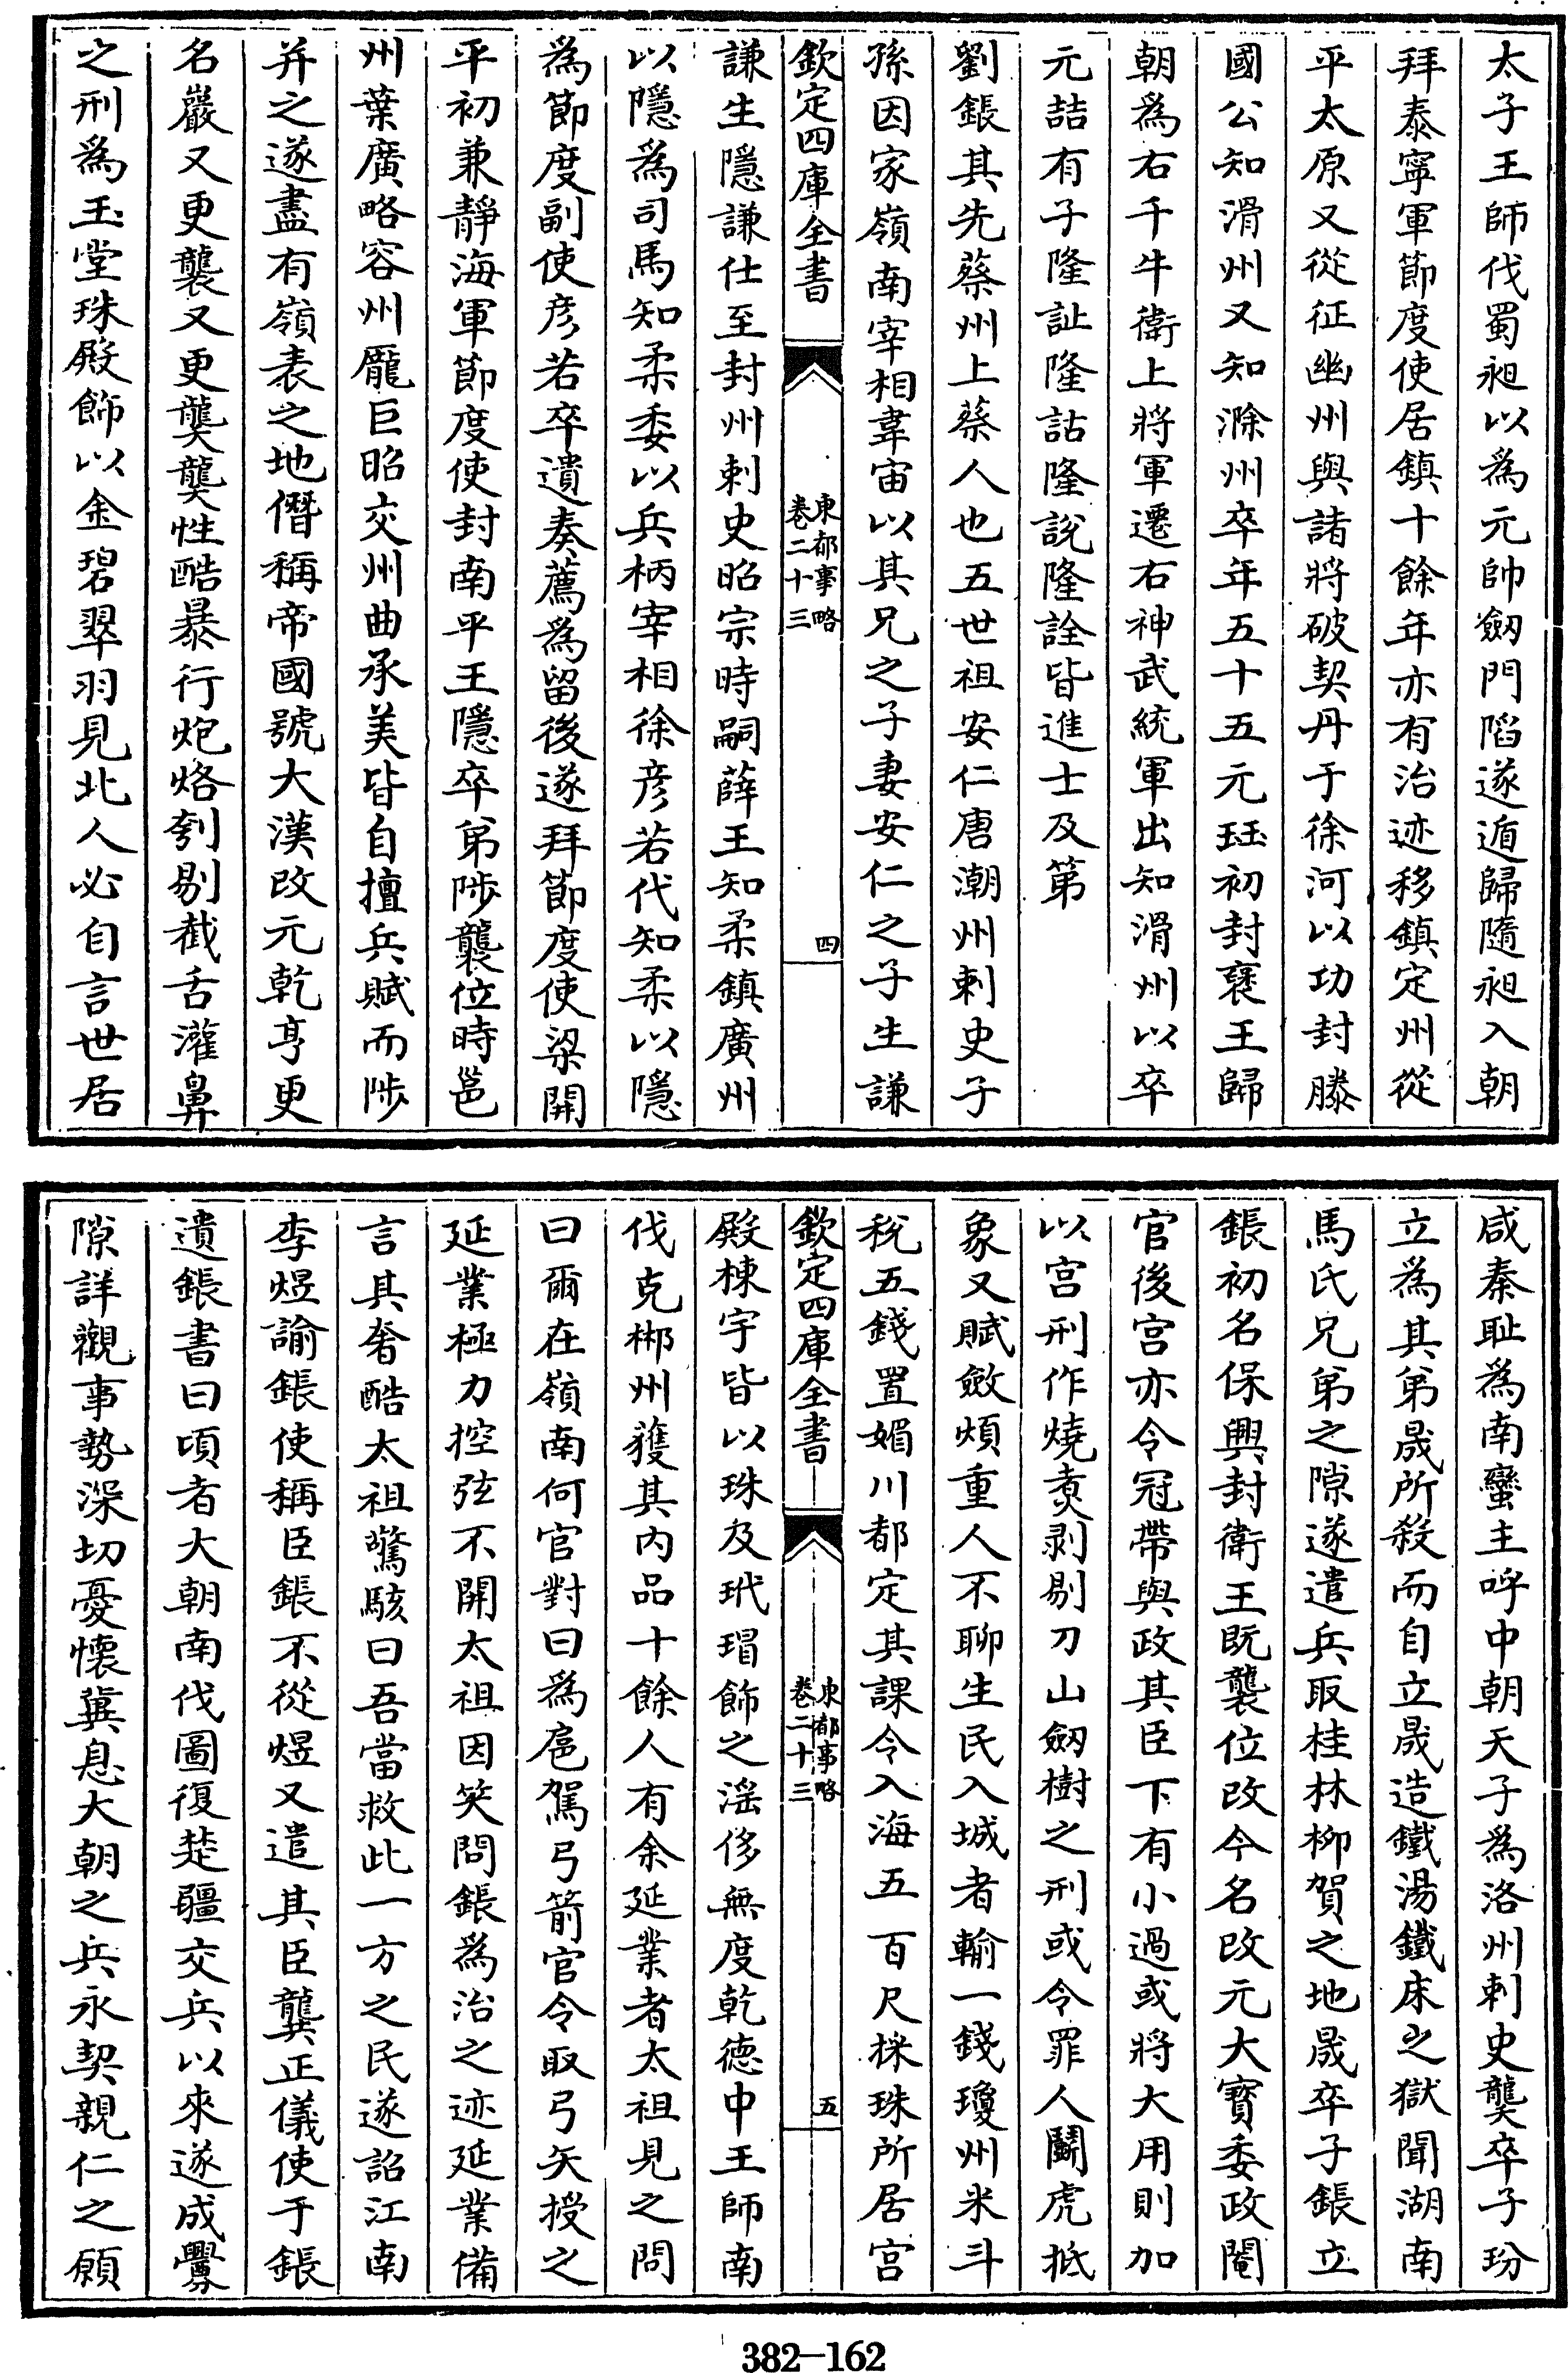 太子王師伐蜀昶以為元帥劔門陷遂遁歸隨昶入朝
拜泰寧軍節度使居鎮十餘年亦有治迹移鎮定州從
平太原又從征幽州與諸將破契丹于徐河以功封滕
國公知滑州又知滁州卒年五十五元珏初封襃王歸
朝為右千牛衛上將軍遷右神武統軍出知滑州以卒
元喆有子隆訨隆詁隆說隆詮皆進士及第
劉鋹其先蔡州上蔡人也五世祖安仁唐潮州刺史子
孫因家嶺南宰相韋宙以其兄之子妻安仁之子生謙
欽定四庫全書
東都事略
卷二十三
四
謙生隱謙仕至封州刺史昭宗時嗣薛王知柔鎮廣州
以隱為司馬知柔委以兵柄宰相徐彦若代知柔以隱
為節度副使彦若卒遺奏薦為留後遂拜節度使梁開
平初兼靜海軍節度使封南平王隱卒弟陟襲位時邕
州葉廣略容州龎巨昭交州曲承美皆自擅兵賦而陟
并之遂盡有嶺表之地僭稱帝國號大漢改元乾亨更
名巖又更襲又更龑龑性酷暴行炮烙刳剔截舌灌鼻
之刑為玉堂珠殿飾以金碧翠羽見北人必自言世居
咸秦耻為南蠻主呼中朝天子為洛州刺史龑卒子玢
立為其弟晟所殺而自立晟造鐵湯鐵床之獄聞湖南
馬氏兄弟之隙遂遣兵取桂林柳賀之地晟卒子鋹立
鋹初名保興封衛王既襲位改今名改元大寳委政閹
官後宫亦令冠帶與政其臣下有小過或將大用則加
以宫刑作燒煑剥剔刀山劔樹之刑或令罪人鬭虎抵
象又賦斂煩重人不聊生民入城者輸一錢瓊州米斗
税五錢置媚川都定其課令入海五百尺採珠所居宫
欽定四庫全書
東都事略
卷二十三
五
殿棟宇皆以珠及玳瑁飾之淫侈無度乾徳中王師南
伐克郴州獲其内品十餘人有余延業者太祖見之問
曰爾在嶺南何官對曰為扈駕弓箭官令取弓矢授之
延業極力控弦不開太祖因笑問鋹為治之迹延業備
言其奢酷太祖驚駭曰吾當救此一方之民遂詔江南
李煜諭鋹使稱臣鋹不從煜又遣其臣龔正儀使于鋹
遺鋹書曰頃者大朝南伐圖復楚疆交兵以來遂成釁
隙詳觀事勢深切憂懷冀息大朝之兵永契親仁之願
382—162